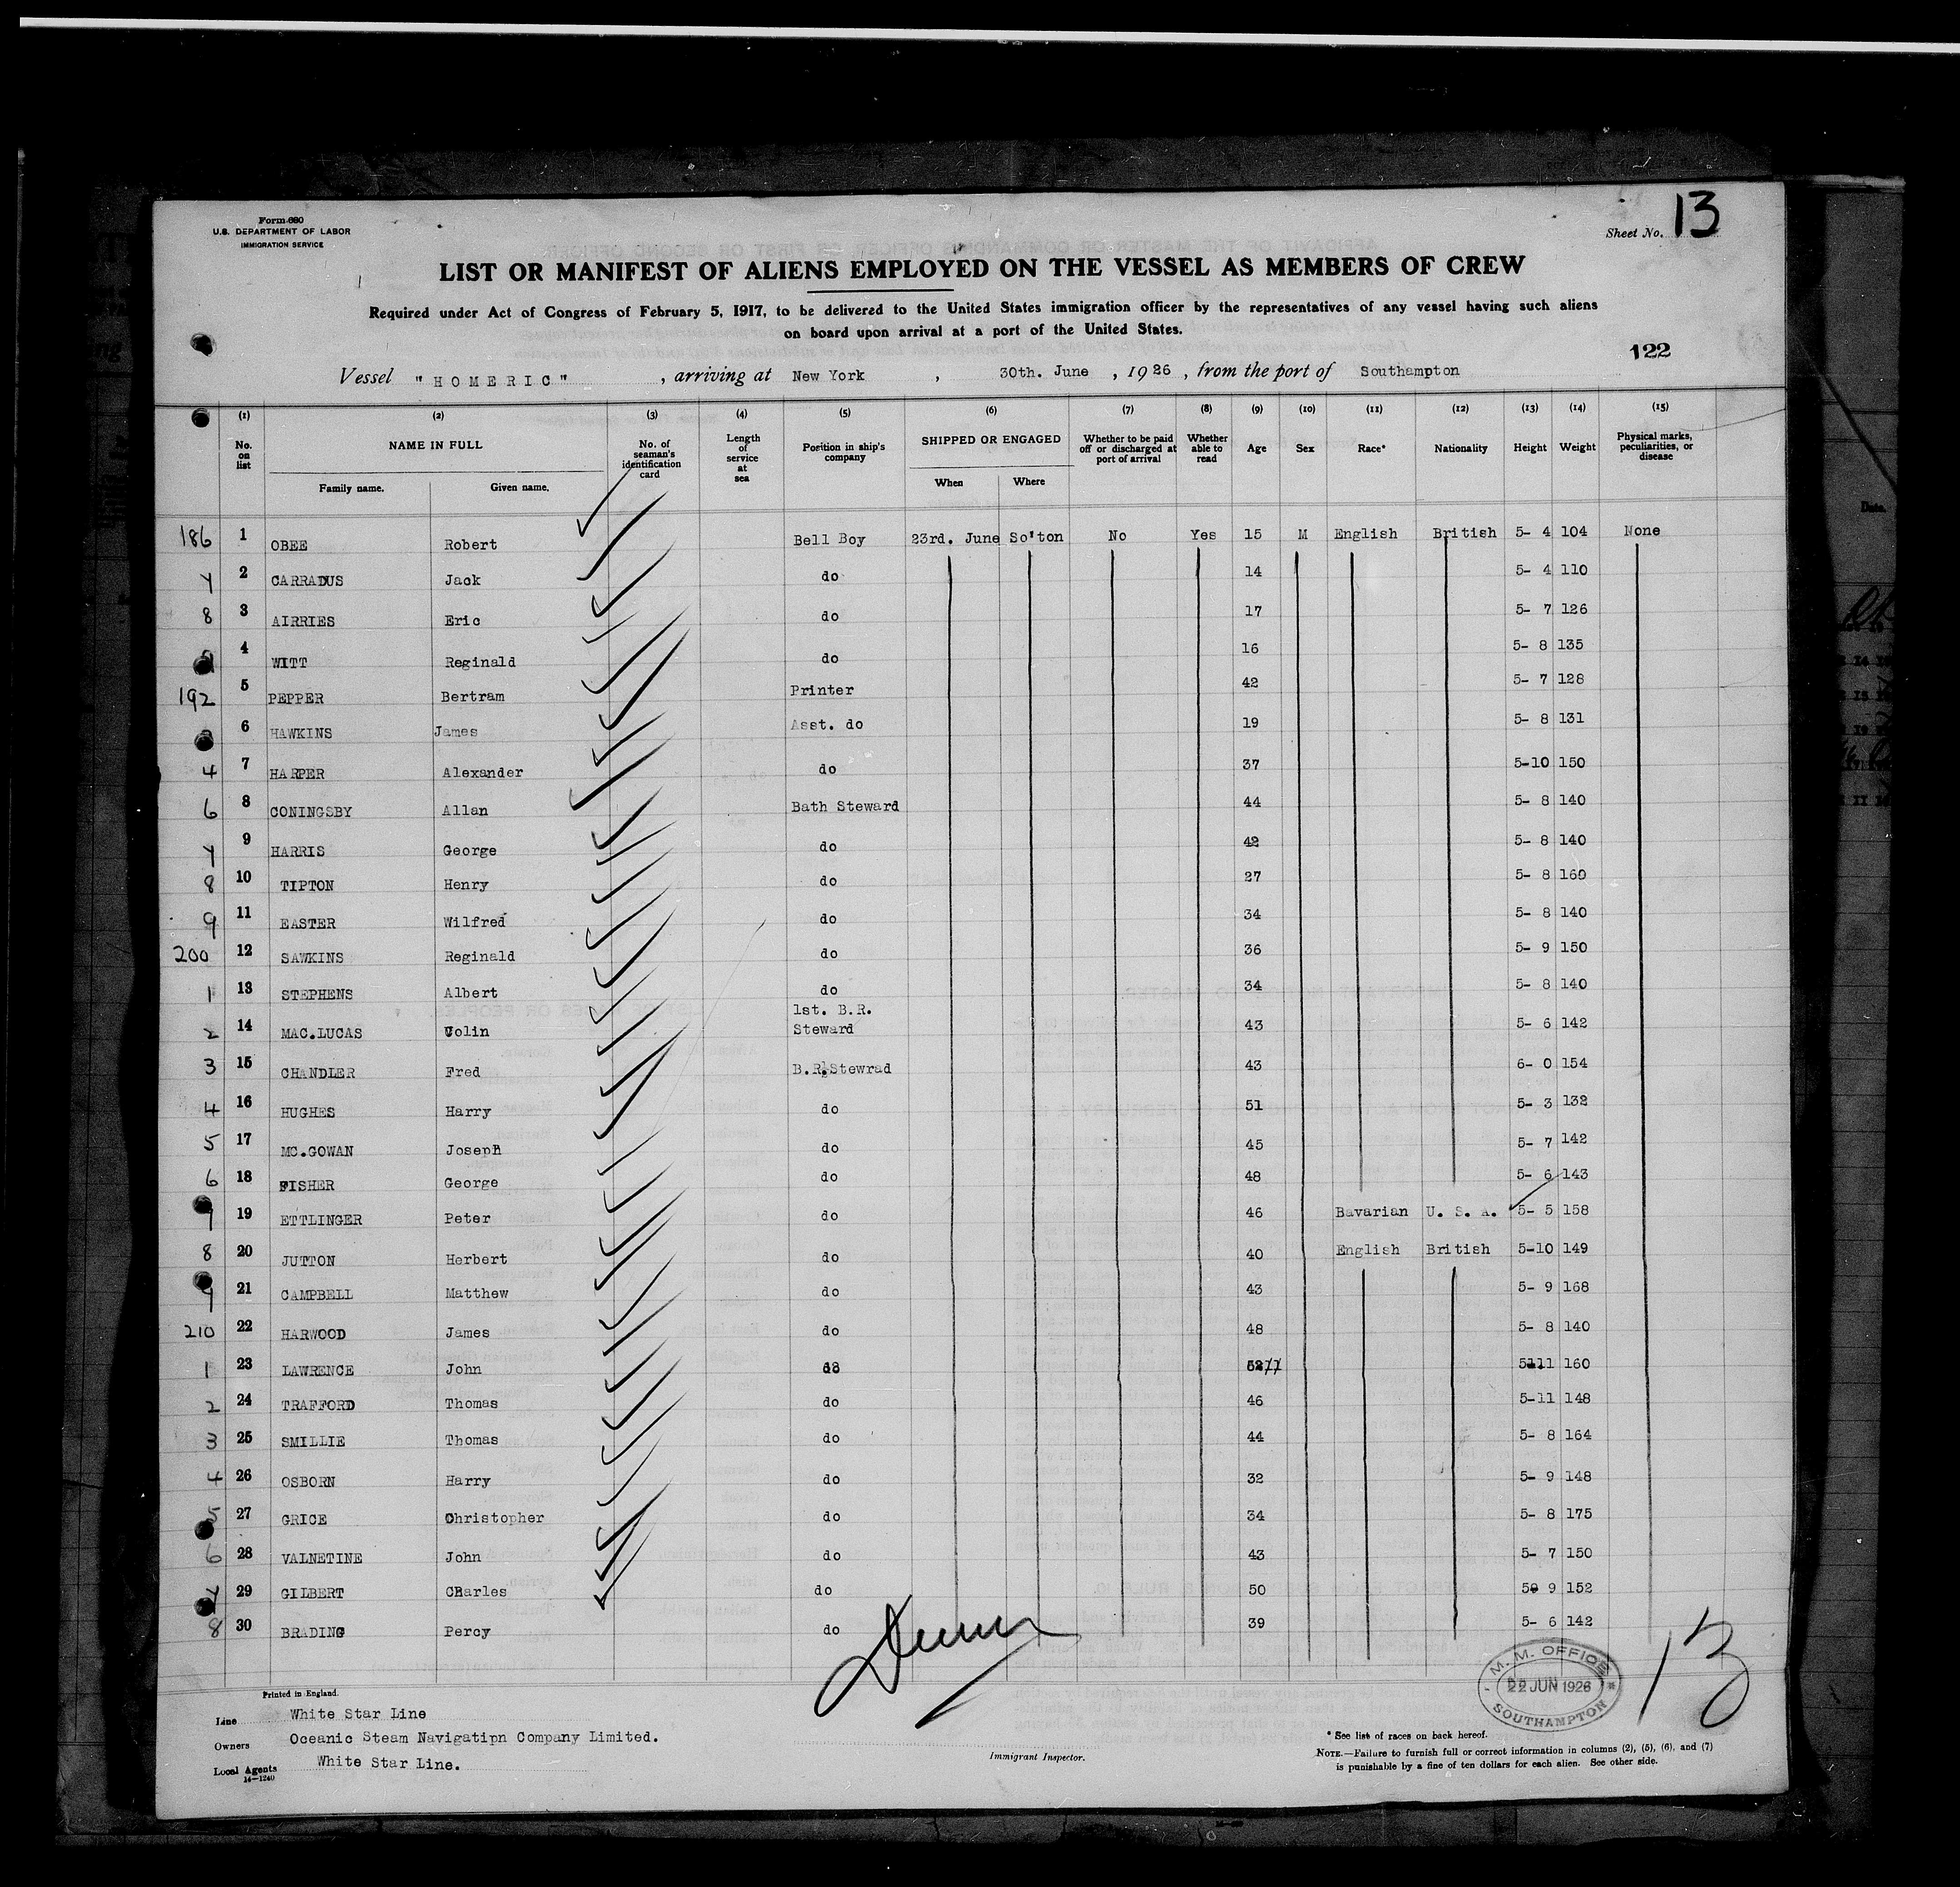 Form 680
U.S. DEPARTMENT OF LABOR
IMMIGRATION SERVICE
Sheet No. 13
LIST OR MANIFEST OF ALIENS EMPLOYED ON THE VESSEL AS MEMBERS OF CREW
Required under Act of Congress of February 5, 1917, to be delivered to the United States immigration officer by the representatives of any vessel having such aliens
on board upon arrival at a port of the United States.
122
Vessel "HOMERIC", arriving at New York, 30th. June, 1926, from the port of Southampton
(1) (2) (3) (4) (5) (6) (7) (8) (9) (10) (11) (12) (13) (14) (15)
No. on list NAME IN FULL Family name. Given name. No. of seaman's identification card Length of service at sea Position in ship's company SHIPPED OR ENGAGED When Where Whether to be paid off or discharged at port of arrival Whether able to read Age Sex Race* Nationality Height Weight Physical marks, peculiarities, or disease
186 1 OBEE Robert Bell Boy 23rd. June So'ton No Yes 15 M English British 5- 4 104 None
7 2 CARRADUS Jack do 14 5- 4 110
8 3 AIRRIES Eric do 17 5- 7 126
4 WITT Reginald do 16 5- 8 135
192 5 PEPPER Bertram Printer 42 5- 7 128
6 HAWKINS James Asst. do 19 5- 8 131
4 7 HARPER Alexander do 37 5-10 150
6 8 CONINGSBY Allan Bath Steward 44 5- 8 140
7 9 HARRIS George do 42 5- 8 140
8 10 TIPTON Henry do 27 5- 8 160
9 11 EASTER Wilfred do 34 5- 8 140
200 12 SAWKINS Reginald do 36 5- 9 150
1 13 STEPHENS Albert do 34 5- 8 140
2 14 MAC.LUCAS Colin 1st. B.R. Steward 43 5- 6 142
3 15 CHANDLER Fred B.R.Stewrad 43 6- 0 154
4 16 HUGHES Harry do 51 5- 3 132
5 17 MC.GOWAN Joseph do 45 5- 7 142
6 18 FISHER George do 48 5- 6 143
7 19 ETTLINGER Peter do 46 Bavarian U. S. A. 5- 5 158
8 20 JUTTON Herbert do 40 English British 5-10 149
9 21 CAMPBELL Matthew do 43 5- 9 168
210 22 HARWOOD James do 48 5- 8 140
1 23 LAWRENCE John do 52 5-11 160
2 24 TRAFFORD Thomas do 46 5-11 148
3 25 SMILLIE Thomas do 44 5- 8 164
4 26 OSBORN Harry do 32 5- 9 148
5 27 GRICE Christopher do 34 5- 8 175
6 28 VALNETINE John do 43 5- 7 150
7 29 GILBERT Charles do 50 5- 9 152
8 30 BRADING Percy do 39 5- 6 142
M. M. OFFICE
22 JUN 1926
SOUTHAMPTON
13
Printed in England.
Line White Star Line
Owners Oceanic Steam Navigatipn Company Limited.
Local Agents White Star Line.
14—1240
Immigrant Inspector.
* See list of races on back hereof.
NOTE.—Failure to furnish full or correct information in columns (2), (5), (6), and (7)
is punishable by a fine of ten dollars for each alien. See other side.